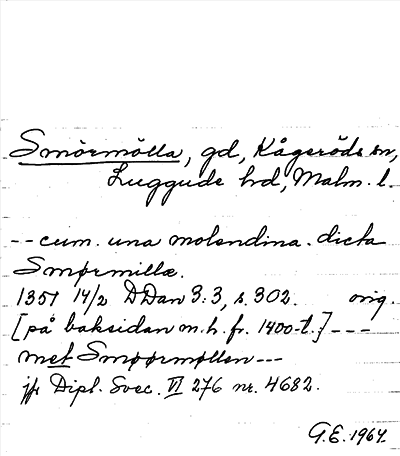 Smörmölla, gd, Kågeröds sn,
Luggude hd, Malm. l.
-- cum. una molendina. dicta
Smørmillæ.
1351 14/2 DDan 3:3, s. 302. orig.
[på baksidan m. h. fr. 1400-t.] ---
met Smøørmøllen ---
jfr Dipl. Svec. VI 276 nr. 4682.
G.E. 1964.